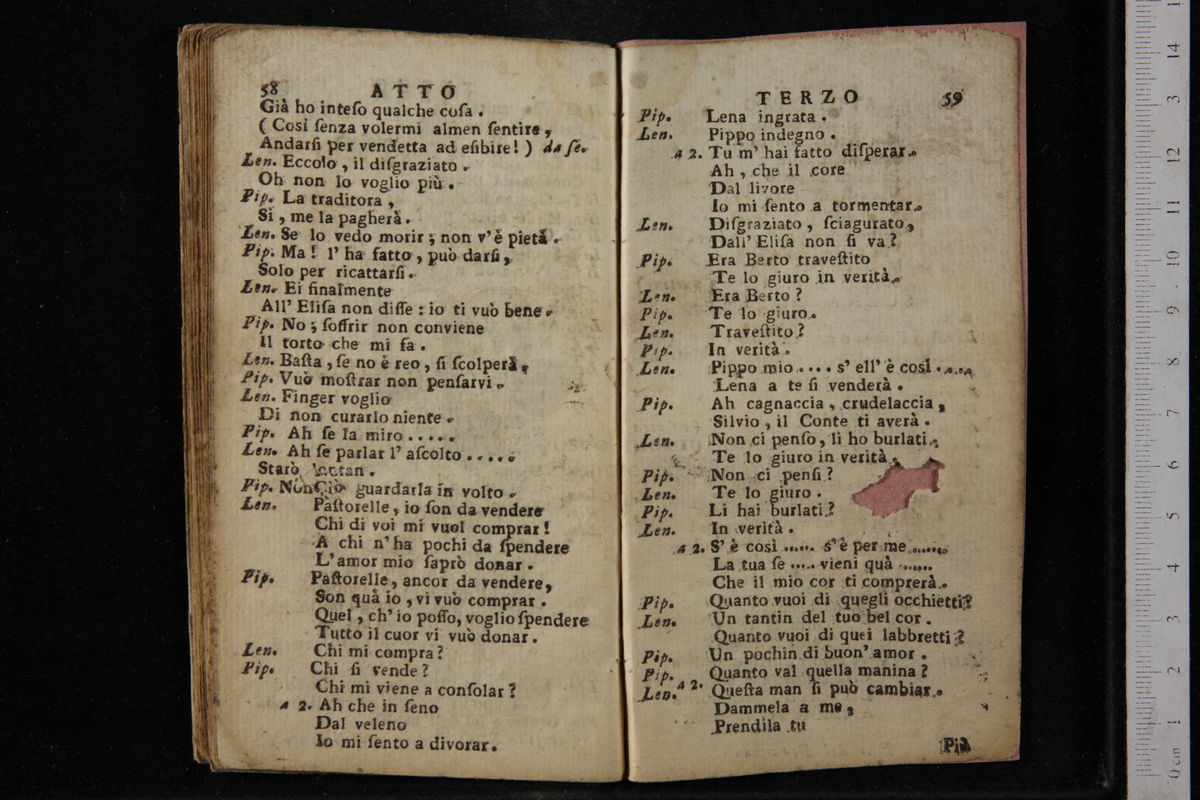 58 ATTO
Già ho inteſo qualche coſa .
( Così ſenza volermi almen ſentire ,
Andarſi per vendetta ad eſibire ! ) da ſe.
Len. Eccolo , il diſgraziato .
Oh non lo voglio più .
Pip. La traditora ,
Sì , me la pagherà .
Len. Se lo vedo morir ; non v' è pietà .
Pip. Ma ! l' ha fatto , può darſi ,
Solo per ricattarſi .
Len. Ei finalmente
All' Eliſa non diſſe : io ti vuò bene .
Pip. No ; ſoffrir non conviene
Il torto che mi fa .
Len. Baſta , ſe no è reo , ſi ſcolperà .
Pip. Vuò moſtrar non penſarvi .
Len. Finger voglio
Di non curarlo niente .
Pip. Ah ſe la miro . . . . .
Len. Ah ſe parlar l' aſcolto . . . . .
Starò
Pip. guardarla in volto .
Len. Paſtorelle , io ſon da vendere
Chi di voi mi vuol comprar !
A chi n' ha pochi da ſpendere
L' amor mio ſaprò donar .
Pip. Paſtorelle , ancor da vendere ,
Son quà io , vi vuò comprar .
Quel , ch' io poſſo , voglio ſpendere
Tutto il cuor vi vuò donar .
Len. Chi mi compra ?
Pip. Chi ſi vende ?
Chi mi viene a conſolar ?
a 2. Ah che in ſeno
Dal veleno
Io mi ſento a divorar .
TERZO 59
Pip. Lena ingrata .
Len. Pippo indegno .
a 2. Tu m' hai fatto diſperar .
Ah , che il core
Dal livore
Io mi ſento a tormentar .
Len. Diſgraziato , ſciagurato ,
Dall' Eliſa non ſi va ?
Pip. Era Berto traveſtito
Te lo giuro in verità .
Len. Era Berto ?
Pip. Te lo giuro .
Len. Traveſtito ?
Pip. In verità .
Len. Pippo mio . . . . s' ell' è così . . . . .
Lena a te ſi venderà .
Pip. Ah cagnaccia , crudelaccia ,
Silvio , il Conte ti averà .
Len. Non ci penſo , li ho burlati .
Te lo giuro in verità .
Pip. Non ci penſi ?
Len. Te lo giuro .
Pip. Li hai burlati ?
Len. In verità .
a 2. S' è così ...... s' è per me .......
La tua fe ..... vieni quà ......
Che il mio cor ti comprerà .
Pip. Quanto vuoi di quegli occhietti ?
Len. Un tantin del tuo bel cor .
Quanto vuoi di quei labbretti ?
Pip. Un pochin di buon' amor .
Pip. Quanto val quella manina ?
Len. a 2. Queſta man ſi può cambiar .
Dammela a me ,
Prendila tu
Più